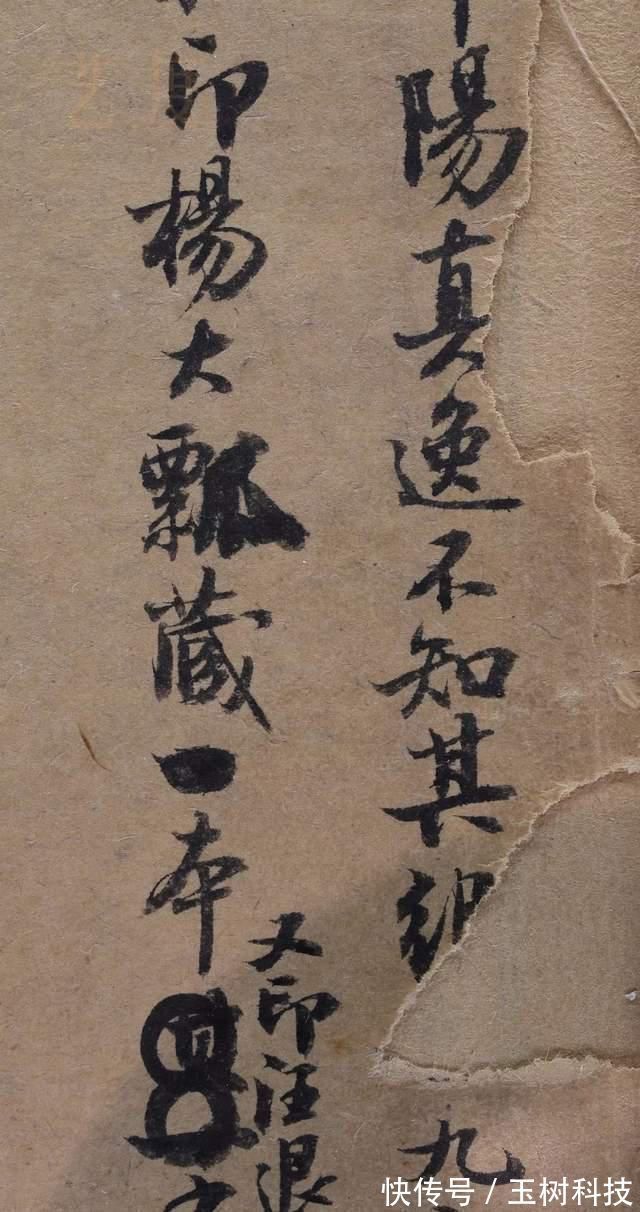 陽真逸不知其
九
印楊大瓢藏一本
又印汪退
快传号 / 玉树科技